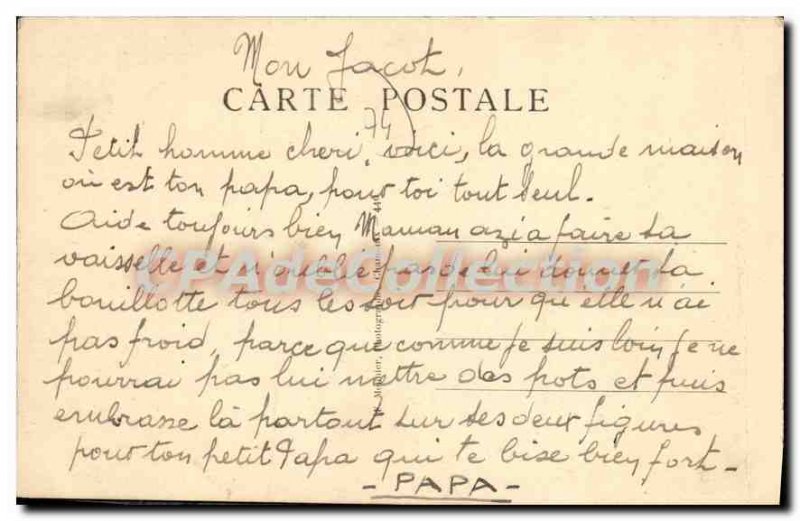 Mon Jacot,
CARTE POSTALE
74
Petit homme cheri, voici, la grande maison
où est ton papa, pour toi tout seul.
Aide toujours bien Maman à faire sa
vaisselle et n'oublie pas de lui donner sa
bouillotte tous les soir pour qu'elle n'ai
pas froid, parce que comme je suis loin je ne
pourrai pas lui mettre des pots et puis
embrasse là partout sur ses deux figures
pour ton petit Papa qui te bise bien fort -
- PAPA -
CPAdeCollection